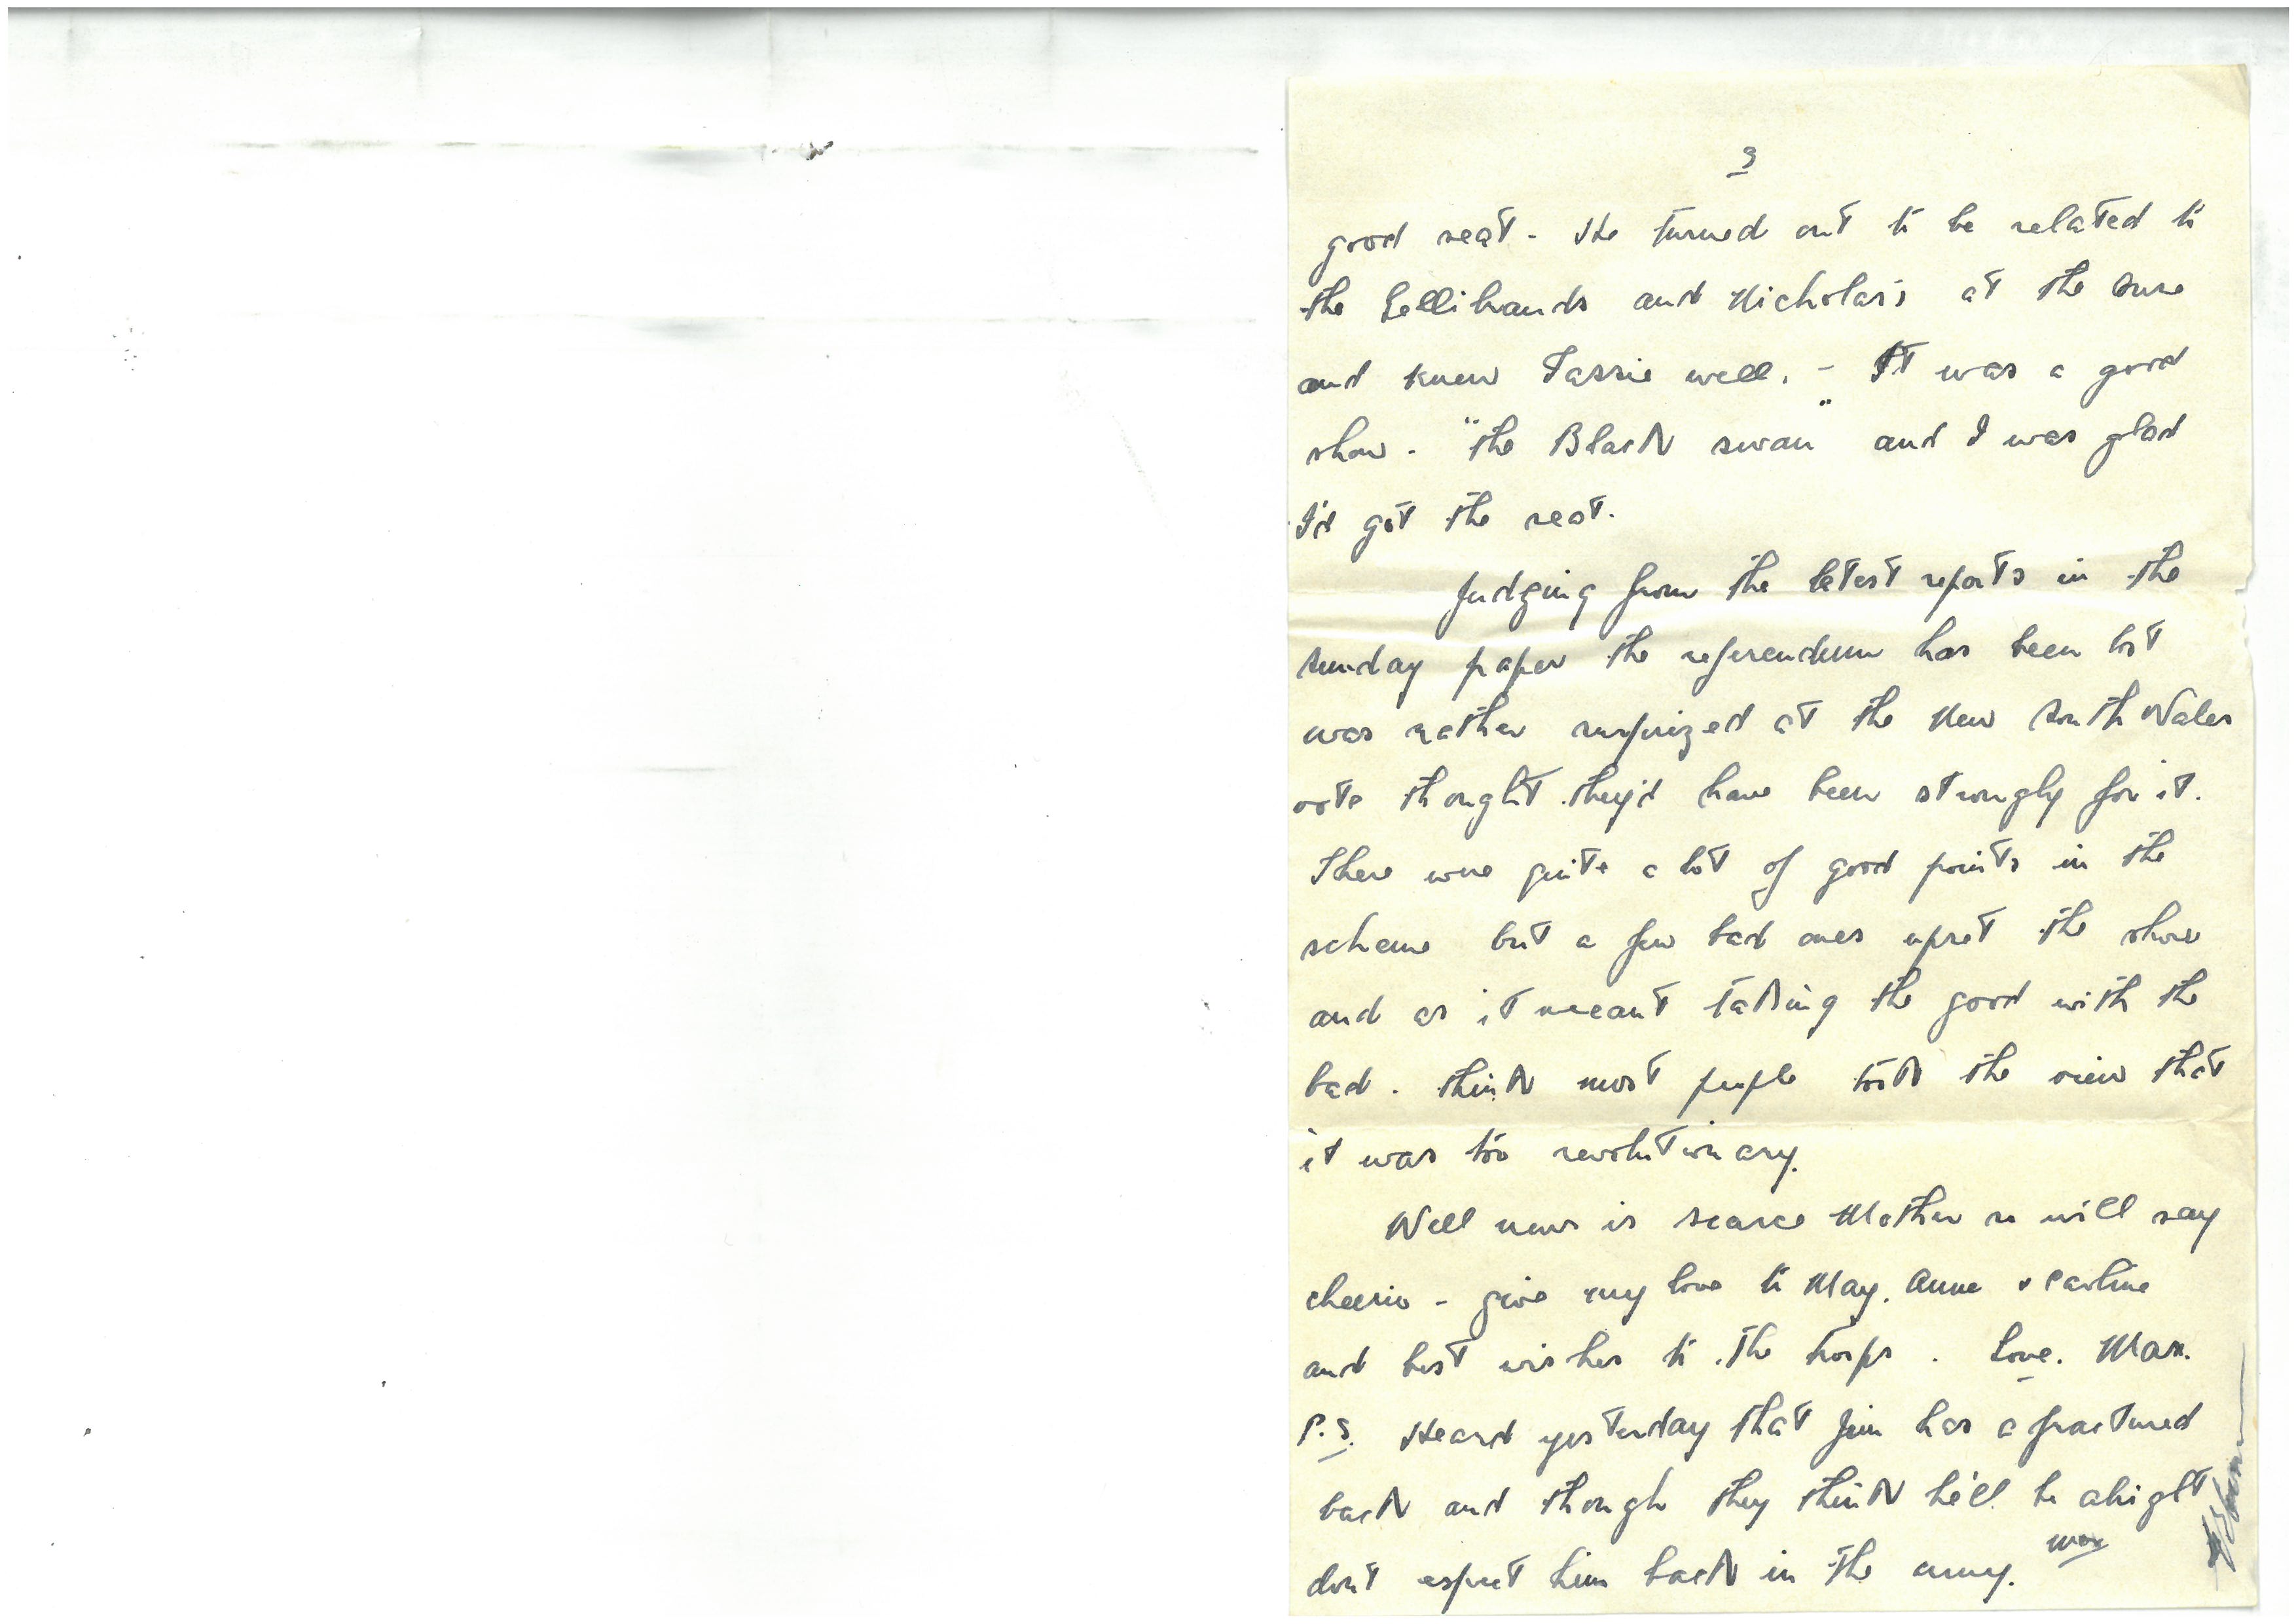 3
good seat - He turned out to be related to
the Gellibrands and Nicholas's at the Ouse
and knew Tassie well. - It was a good
show. "The Black Swan" and I was glad
I'd got the seat.
Judging from the latest reports in the
Sunday paper the referendum has been lost
was rather surprized at the New South Wales
vote thought they'd have been strongly for it.
There were quite a lot of good points in the
scheme but a few bad ones upset the show
and as it meant taking the good with the
bad. think most people took the view that
it was too revolutionary.
Well news is scarce Mother so will say
cheerio - give my love to May, Anne &
and best wishes to the troops. Love. Max.
P.S. Heard yesterday that Jim has a fractured
back and though they think he'll be alright
don't expect him back in the army. Max